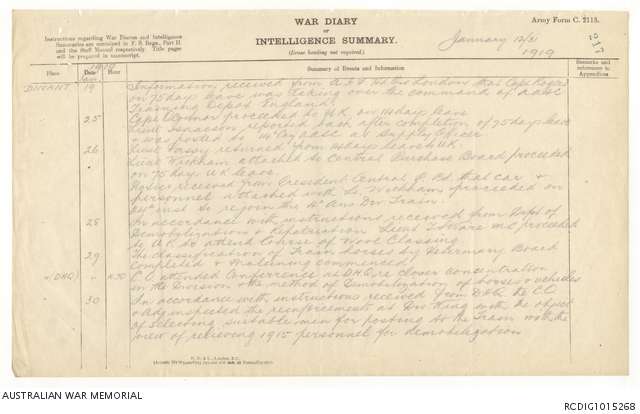 WAR DIARY
or
INTELLIGENCE SUMMARY.
(Erase heading not required.)
Army Form C. 2118.
Instructions regarding War Diaries and Intelligence
Summaries are contained in F. S. Regs., Part II
and the Staff Manual respectively. Title pages
will be prepared in manuscript.
January 12/31
1919
217
Place Date Hour Summary of Events and Information Remarks and references to Appendices
1919
Jan
DINANT 19 Information received from A.I.F. Hdqrs London that Capt Rogers
on 75 days leave was taking over the command of AASC
Training Depot England
25 Capt O'Connor proceeded to U.K. on 14 days leave
Lieut Isaacson reported back after completion of 75 days leave
& was posted to Coy AASC as Supply Officer
26 Lieut returned from 14 days leave U.K.
Lieut Wickham attached to Central Purchase Board proceeded
on 75 days U.K. leave.
Notice received from President Central P. Bd. that car &
personnel attached with Lt. Wickham proceeded on
inst to rejoin the 4th Aus Div Train.
28 In accordance with instructions received from Dept of
Demobilization & Repatriation Lieut M.C. proceeded
to U.K. to attend Course of Wool Classing
29 The classification of Train horses by Veterinary Board
completed & commenced.
" (DHQ) " C.O. attended Conference at DHQ re closer concentration
in the Division & the method of Demobilization of horses & vehicles
30 In accordance with instructions received from DHQ the C.O.
& Adjt inspected the reinforcements at Div Wing with the object
of selecting suitable men for posting to the Train with the
view of relieving 1915 personnel for demobilization
AUSTRALIAN WAR MEMORIAL
RCDIG1015268